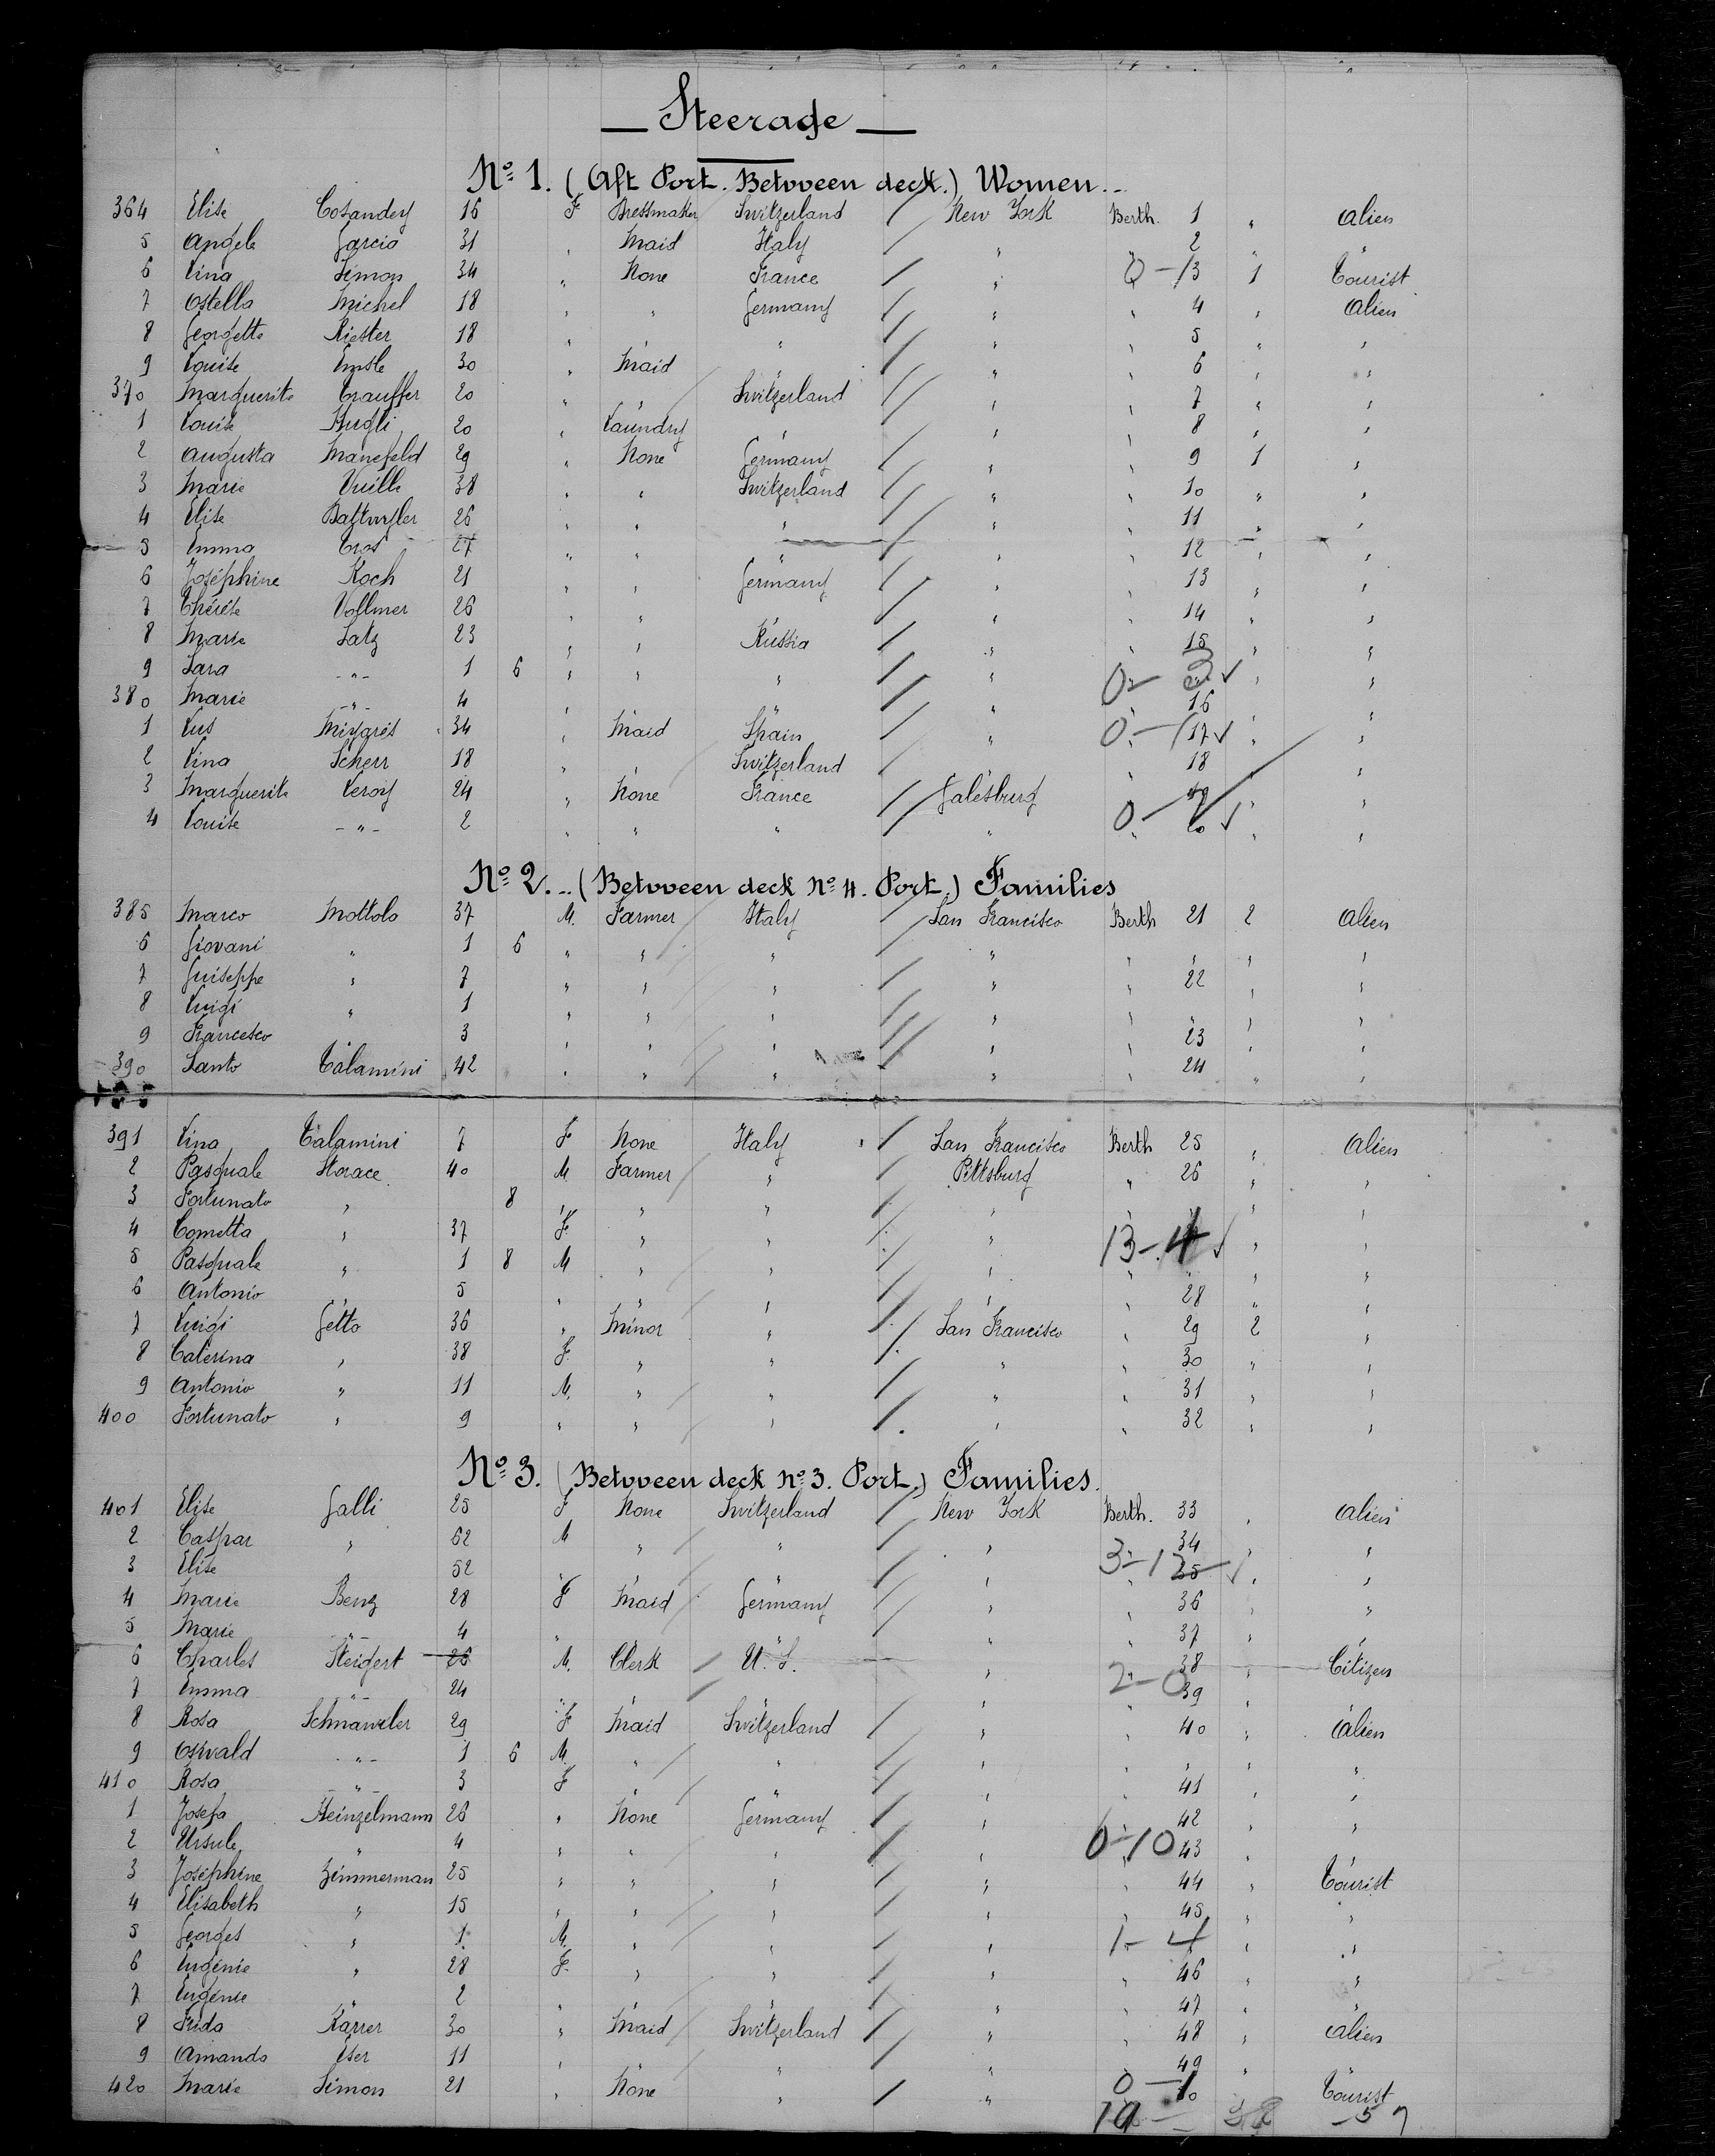 — Steerage —
No 1. (Aft Port. Between deck.) Women.
364 Elise Cosandey 16 F Dressmaker Switzerland / New York Berth. 1 " Alien
5 Angele Garcia 31 " Maid Italy / " " 2 " "
6 Lina Simon 34 " None France / " 0-1 3 1 Tourist
7 Ostella Michel 18 " " Germany / " " 4 " Alien
8 Georgette Riester 18 " " " / " " 5 " "
9 Louise Emsle 30 " Maid " / " " 6 " "
370 Marguerite Trauffer 20 " " Switzerland / " " 7 " "
1 Louise Hugli 20 " Laundry " / " " 8 " "
2 Augusta Manefeld 29 " None Germany / " " 9 1 "
3 Marie Vuille 38 " " Switzerland / " " 10 " "
4 Elise 26 " " " / " " 11 " "
5 Emma Cros 27 " " " / " " 12 " "
6 Joséphine Koch 21 " " Germany / " " 13 " "
7 Thérèse Vollmer 26 " " " / " " 14 " "
8 Marie Satz 23 " " Russia / " " 15 " "
9 Sara -"- 1 6 " " " / " 0- 3 ✓ " "
380 Marie -"- 4 " " " / " " 16 " "
1 Lus 34 " Maid Spain / " 0-1 17 ✓ " "
2 Lina Scherr 18 " " Switzerland / " " 18 " "
3 Marguerite Leroy 24 " None France / Galesburg " 19 " "
4 Louise -"- 2 " " " / " 0- 20 ✓ " "
No 2. (Between deck No 4. Port.) Families
385 Marco Mottolo 37 M. Farmer Italy / San Francisco Berth 21 2 Alien
6 Giovani " 1 6 " " " / " " " " "
7 Guiseppe " 7 " " " / " " 22 " "
8 Luigi " 1 " " " / " " " " "
9 Francesco " 3 " " " / " " 23 " "
390 Santo Calamini 42 " " " / " " 24 " "
391 Lina Calamini 7 F None Italy / San Francisco Berth 25 " Alien
2 Pasquale Horace 40 M. Farmer " / Pittsburg " 26 " "
3 Fortunato " 8 " " " / " " " "
4 Cometta " 37 F " " / " 13-4 ✓ " "
5 Pasquale " 1 8 M " " / " " " " "
6 Antonio " 5 " " " / " " 28 " "
7 Luigi Getto 36 " Minor " / San Francisco " 29 2 "
8 Caterina " 38 F. " " / " " 30 " "
9 Antonio " 11 M. " " / " " 31 " "
400 Fortunato " 9 " " " / " " 32 " "
No 3. (Between deck No 3. Port.) Families.
401 Elise Galli 25 F None Switzerland / New York Berth. 33 " Alien
2 Caspar " 62 M " " / " " 34 " "
3 Elise " 52 " " " / " 3-1 35 ✓ " "
4 Marie Benz 28 F Maid Germany / " " 36 " "
5 Marie -"- 4 " " " / " " 37 " "
6 Charles Steigert 26 M. Clerk / U.S. " " 38 " Citizen
7 Emma -"- 24 " " / " " 2-0 39 " "
8 Rosa Schnawiler 29 F Maid Switzerland / " " 40 " Alien
9 Oswald -"- 1 6 M. " " / " " " " "
410 Rosa -"- 3 F " " / " " 41 " "
1 Josefa Heinzelmann 26 " None Germany / " " 42 " "
2 Ursule " 4 " " " / " 0-10 43 " "
3 Joséphine Zimmerman 25 " " " / " " 44 " Tourist
4 Elisabeth " 15 " " " / " " 45 " "
5 Georges " 1 M. " " / " 1-4 " "
6 Eugénie " 28 F. " " / " " 46 " "
7 Eugénie " 2 " " " / " " 47 " "
8 Frida Karrer 30 " Maid Switzerland / " " 48 " Alien
9 Amanda Iser 11 " " " / " " 49 " "
420 Marie Simon 21 " None " / " 0-1 " Tourist
19 - 38 - 57